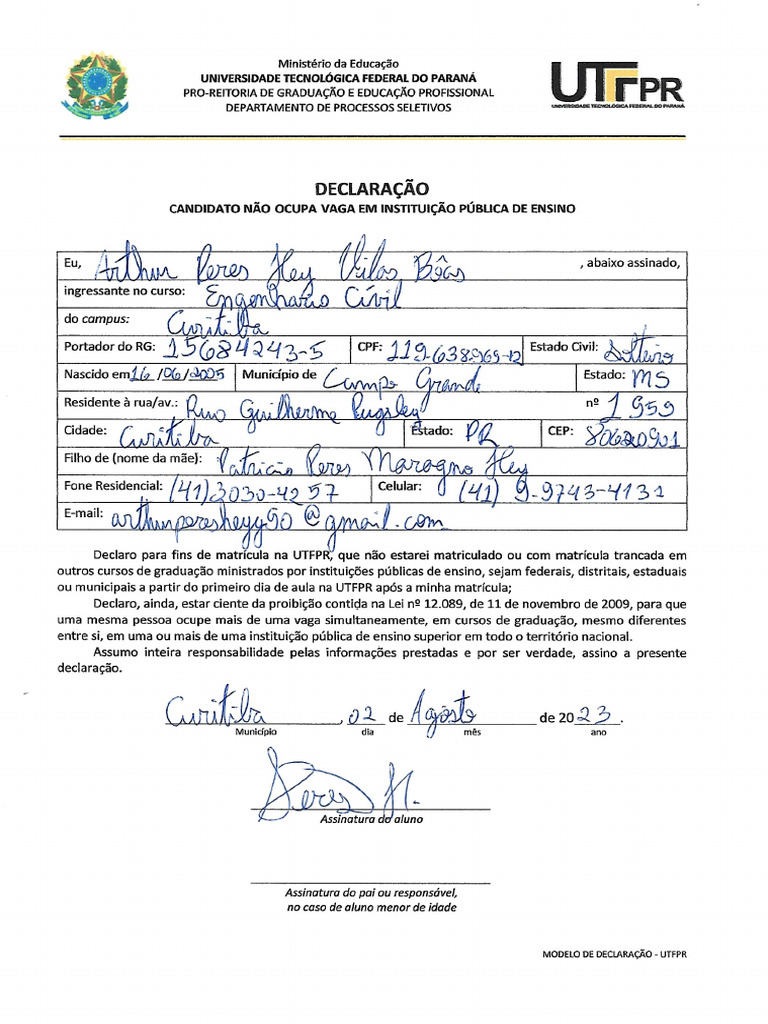 Ministério da Educação
UNIVERSIDADE TECNOLÓGICA FEDERAL DO PARANÁ
PRO-REITORIA DE GRADUAÇÃO E EDUCAÇÃO PROFISSIONAL
DEPARTAMENTO DE PROCESSOS SELETIVOS
UTFPR
UNIVERSIDADE TECNOLÓGICA FEDERAL DO PARANÁ
DECLARAÇÃO
CANDIDATO NÃO OCUPA VAGA EM INSTITUIÇÃO PÚBLICA DE ENSINO
Eu, Arthur Peres Hey Vilas Bôas , abaixo assinado,
ingressante no curso: Engenharia Cívil
do campus: Curitiba
Portador do RG: 15684243-5 CPF: 119.638.969-12 Estado Civil: Solteiro
Nascido em 16/06/2005 Município de Campo Grande Estado: MS
Residente à rua/av.: Rua Guilherme Pugsley nº 1959
Cidade: Curitiba Estado: PR CEP: 80620901
Filho de (nome da mãe): Patricia Peres Maragno Hey
Fone Residencial: (41)3030-4257 Celular: (41) 9-9743-4131
E-mail: arthurperesheyy90@gmail.com
Declaro para fins de matrícula na UTFPR, que não estarei matriculado ou com matrícula trancada em
outros cursos de graduação ministrados por instituições públicas de ensino, sejam federais, distritais, estaduais
ou municipais a partir do primeiro dia de aula na UTFPR após a minha matrícula;
Declaro, ainda, estar ciente da proibição contida na Lei nº 12.089, de 11 de novembro de 2009, para que
uma mesma pessoa ocupe mais de uma vaga simultaneamente, em cursos de graduação, mesmo diferentes
entre si, em uma ou mais de uma instituição pública de ensino superior em todo o território nacional.
Assumo inteira responsabilidade pelas informações prestadas e por ser verdade, assino a presente
declaração.
Curitiba , 02 de Agosto de 2023.
Município dia mês ano
Peres H.
Assinatura do aluno
Assinatura do pai ou responsável,
no caso de aluno menor de idade
MODELO DE DECLARAÇÃO - UTFPR